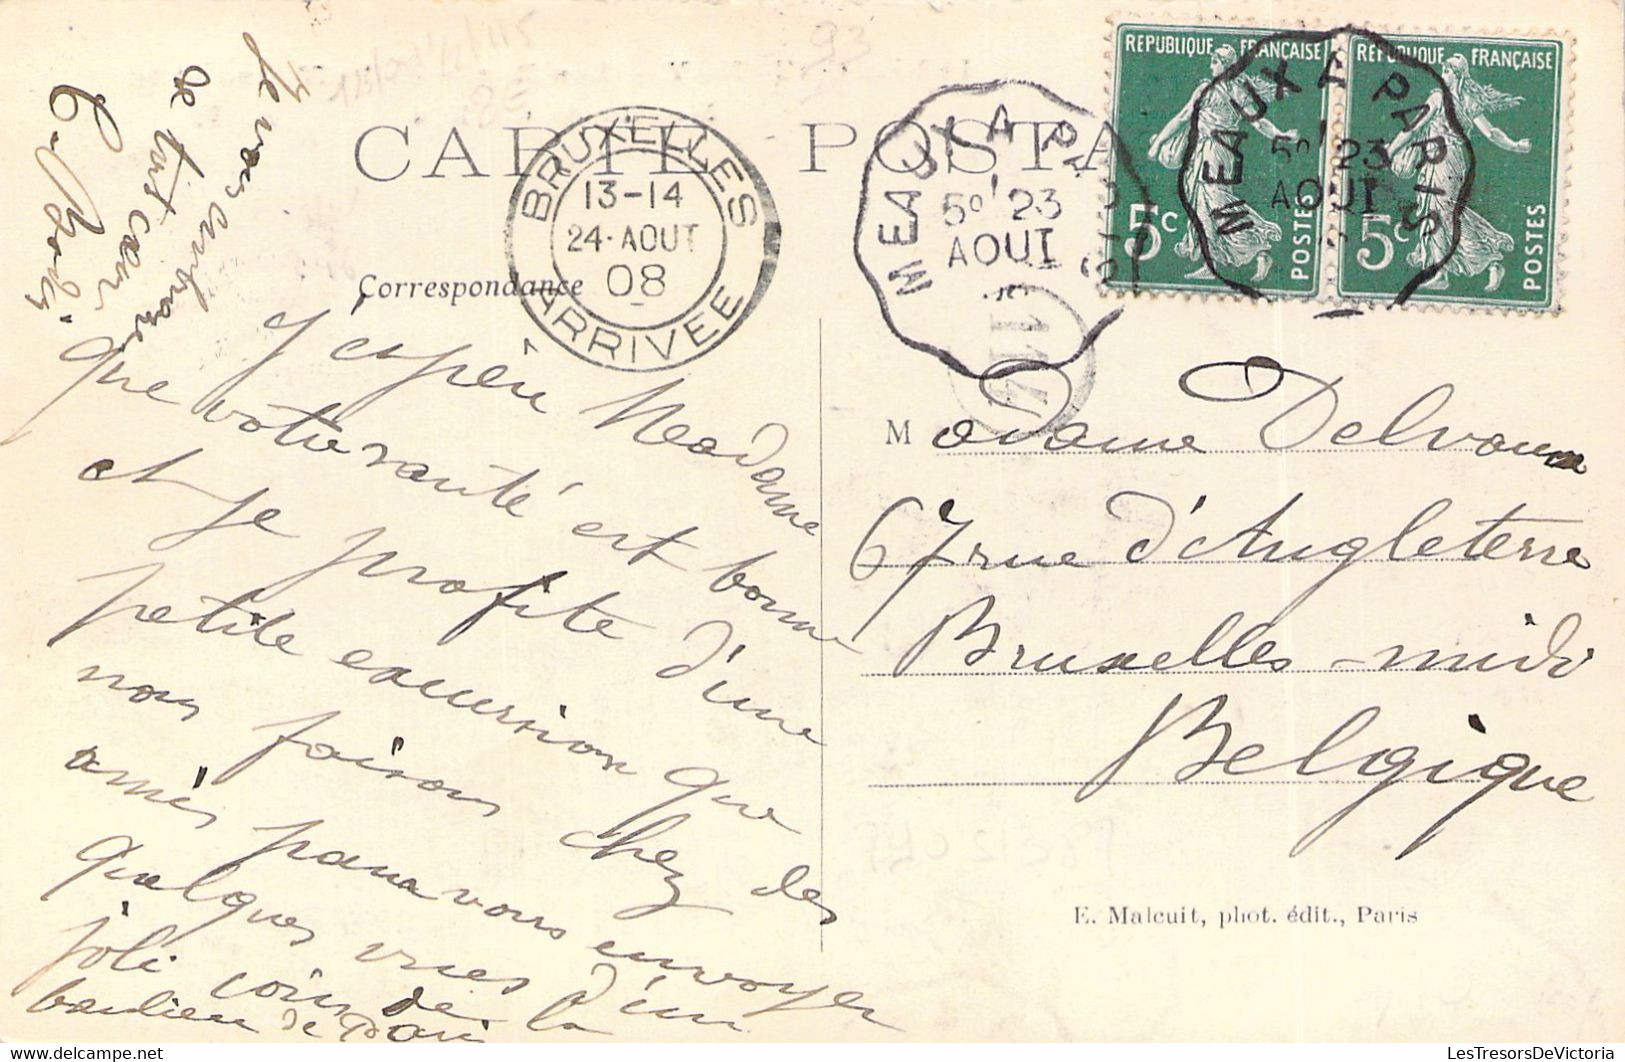 CARTE POSTALE
Correspondance
BRUXELLES
13-14
24·AOUT
08
ARRIVEE
MEAUX A PARIS
5º 23
AOUT
114
REPUBLIQUE FRANÇAISE
5c
POSTES
REPUBLIQUE FRANÇAISE
5c
POSTES
MEAUX A PARIS
5º 23
AOUT
93
Je vous embrasse
de tout cœur
J'espère Madame
que votre santé est bonne
et je profite d'une
petite excursion que
nous faisons chez des
amis pour vous envoyer
quelques vues d'un
joli coin de la
banlieue de Paris
Madame Delvaux
67 rue d'Angleterre
Bruxelles - midi
Belgique
E. Malcuit, phot. édit., Paris
LesTresorsDeVictoria